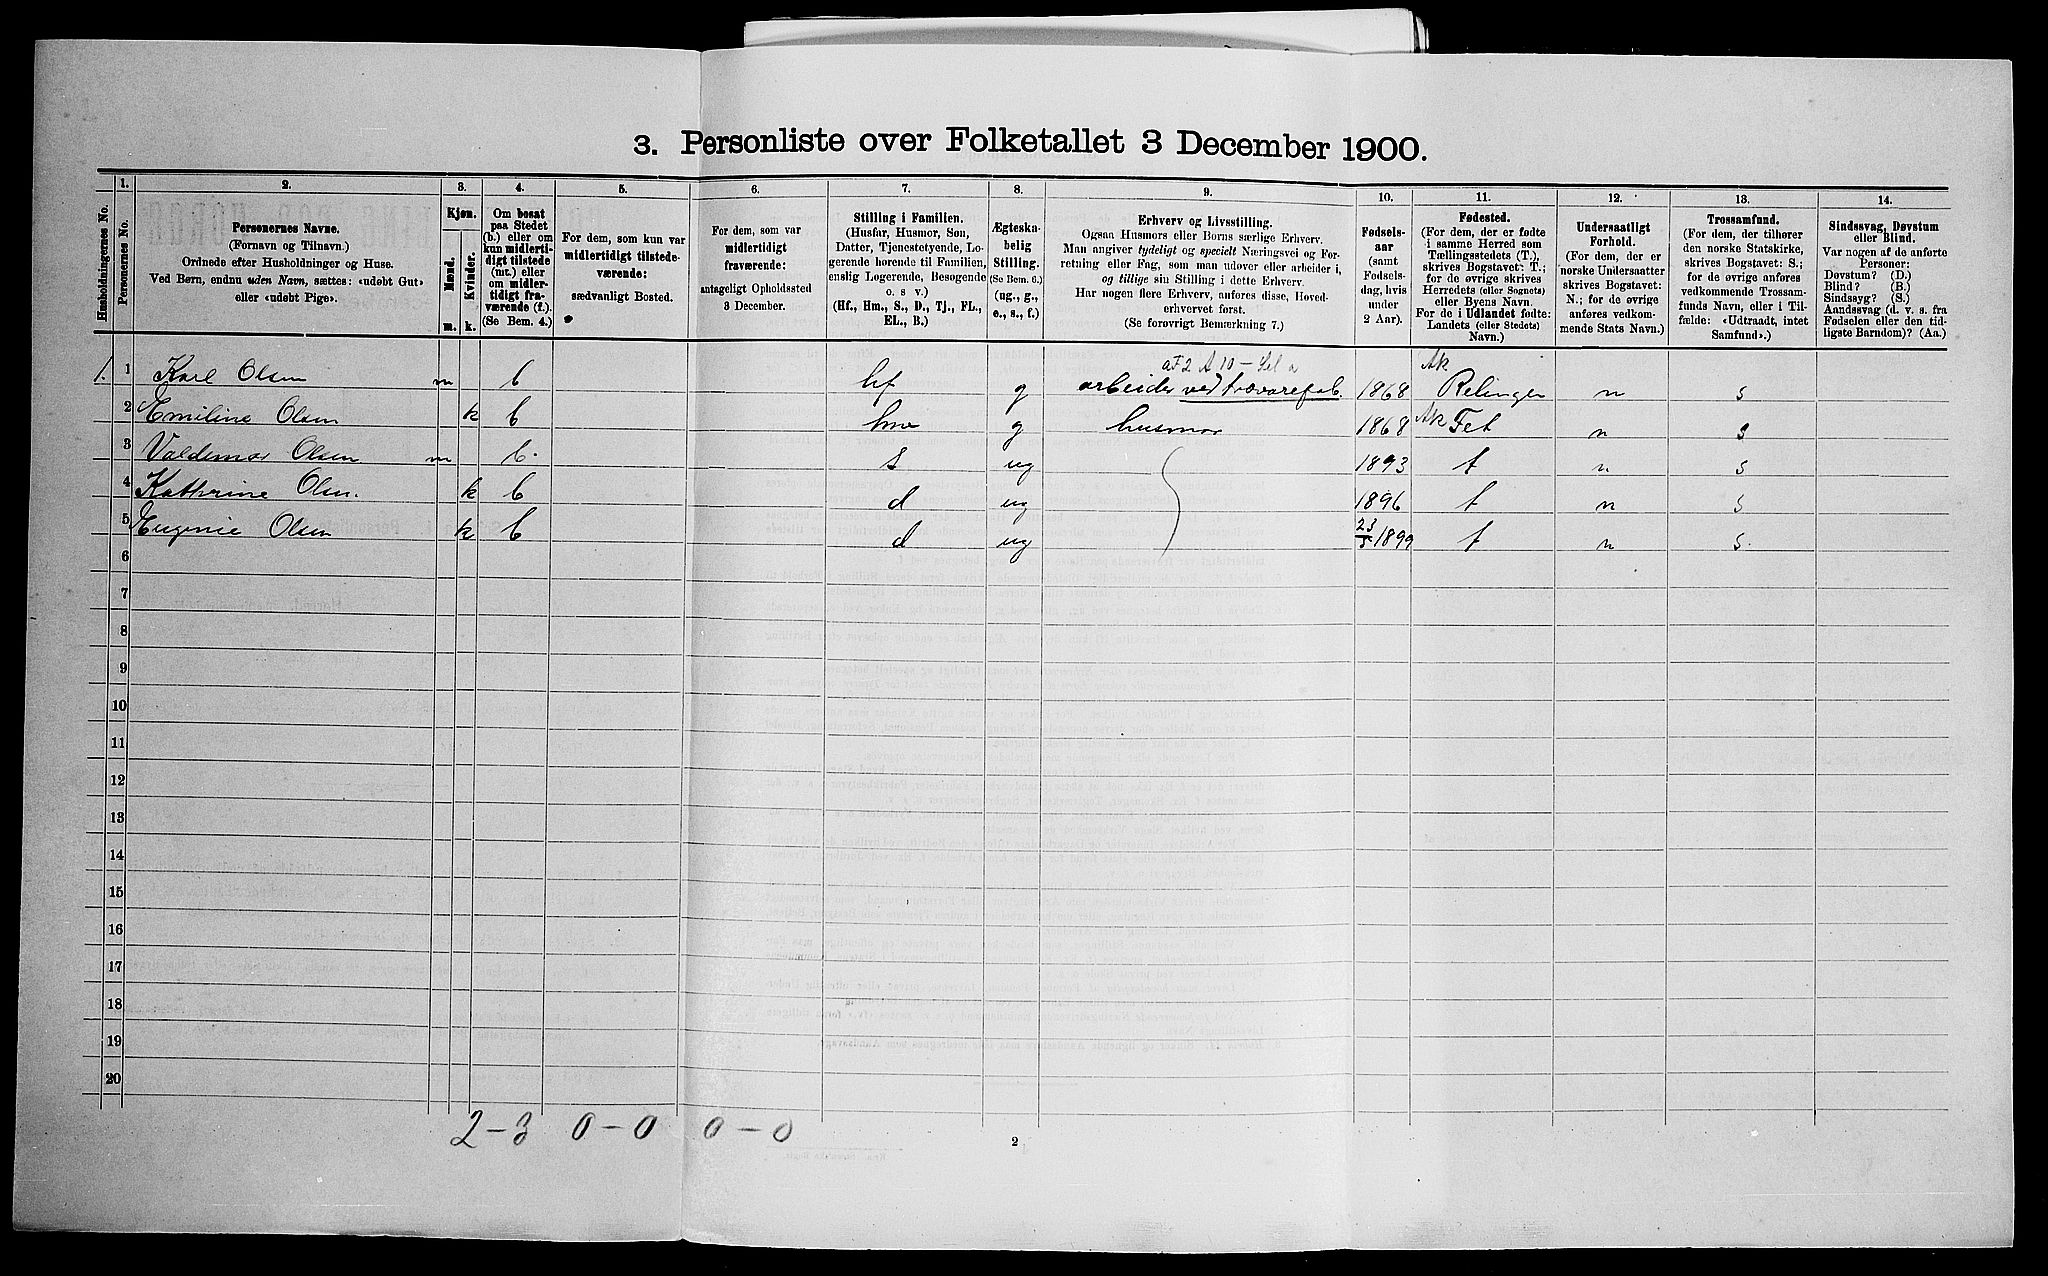 3. Personliste over Folketallet 3 December 1900.
1. 2. 3. 4. 5. 6. 7. 8. 9. 10. 11. 12. 13. 14.
Husholdningernes No.
Personernes No.
Personernes Navne.
(Fornavn og Tilnavn.)
Ordnede efter Husholdninger og Huse.
Ved Børn, endnu uden Navn, sættes: «udøbt Gut»
eller «udøbt Pige».
Kjøn.
Mænd. Kvinder.
m. k.
Om bosat
paa Stedet
(b.) eller om
kun midler-
tidigt tilstede
(mt.) eller
om midler-
tidigt fra-
værende (f.).
(Se Bem. 4.)
For dem, som kun var
midlertidigt tilstede-
værende:
sædvanligt Bosted.
For dem, som var
midlertidigt
fraværende:
antageligt Opholdssted
3 December.
Stilling i Familien.
(Husfar, Husmor, Søn,
Datter, Tjenestetyende, Lo-
gerende hørende til Familien,
enslig Logerende, Besøgende
o. s v.)
(Hf., Hm., S., D., Tj., FL.,
EL., B.)
Ægteska-
belig
Stilling.
(Se Bem. 6.)
(ug., g.,
e., s., f.)
Erhverv og Livsstilling.
Ogsaa Husmors eller Børns særlige Erhverv.
Man angiver tydeligt og specielt Næringsvei og For-
retning eller Fag, som man udøver eller arbeider i,
og tillige sin Stilling i dette Erhverv.
Har nogen flere Erhverv, anføres disse, Hoved-
erhvervet først.
(Se forøvrigt Bemærkning 7.)
Fødsels-
aar
(samt
Fødsels-
dag, hvis
under
2 Aar).
Fødested.
(For dem, der er fødte
i samme Herred som
Tællingsstedets (T.),
skrives Bogstavet: T.;
for de øvrige skrives
Herredets (eller Sognets)
eller Byens Navn.
For de i Udlandet fødte:
Landets (eller Stedets)
Navn.)
Undersaatligt
Forhold.
(For dem, der er
norske Undersaatter
skrives Bogstavet:
N.; for de øvrige
anføres vedkom-
mende Stats Navn.)
Trossamfund.
(For dem, der tilhører
den norske Statskirke,
skrives Bogstavet: S.;
for de øvrige anføres
vedkommende Trossam-
funds Navn, eller i Til-
fælde: «Udtraadt, intet
Samfund».)
Sindssvag, Døvstum
eller Blind.
Var nogen af de anførte
Personer:
Døvstum? (D.)
Blind? (B.)
Sindssyg? (S.)
Aandssvag (d. v. s. fra
Fødselen eller den tid-
ligste Barndom)? (Aa.)
1. 1 Karl Olsen m b hf g arbeider ved trævarefab. 1868 Ak Relingen n s
2 Emiline Olsen k b hm g husmor 1868 Ak Fet n s
3 Valdemar Olsen m b. s ug 1893 t n s
4 Kathrine Olsn. k b d ug 1896 t n s
5 Eugenie Olsen k b d ug 23/5 1899 t n s.
6
7
8
9
10
11
12
13
14
15
16
17
18
19
20
2-3 0-0 0-0
2